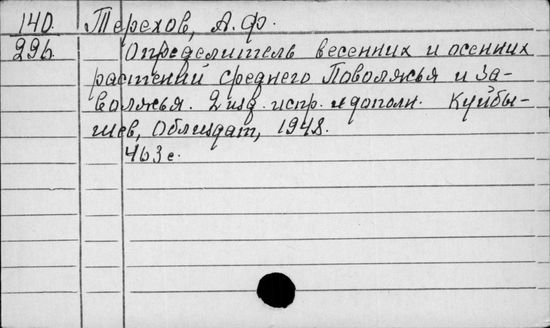 140. Терехов, А.Ф.
296. Определитель весенних и осенних
растений среднего Поволжья и За-
волжья. 2 изд. испр. и дополн. Куйбы-
шев, Облиздат, 1948.
463 с.